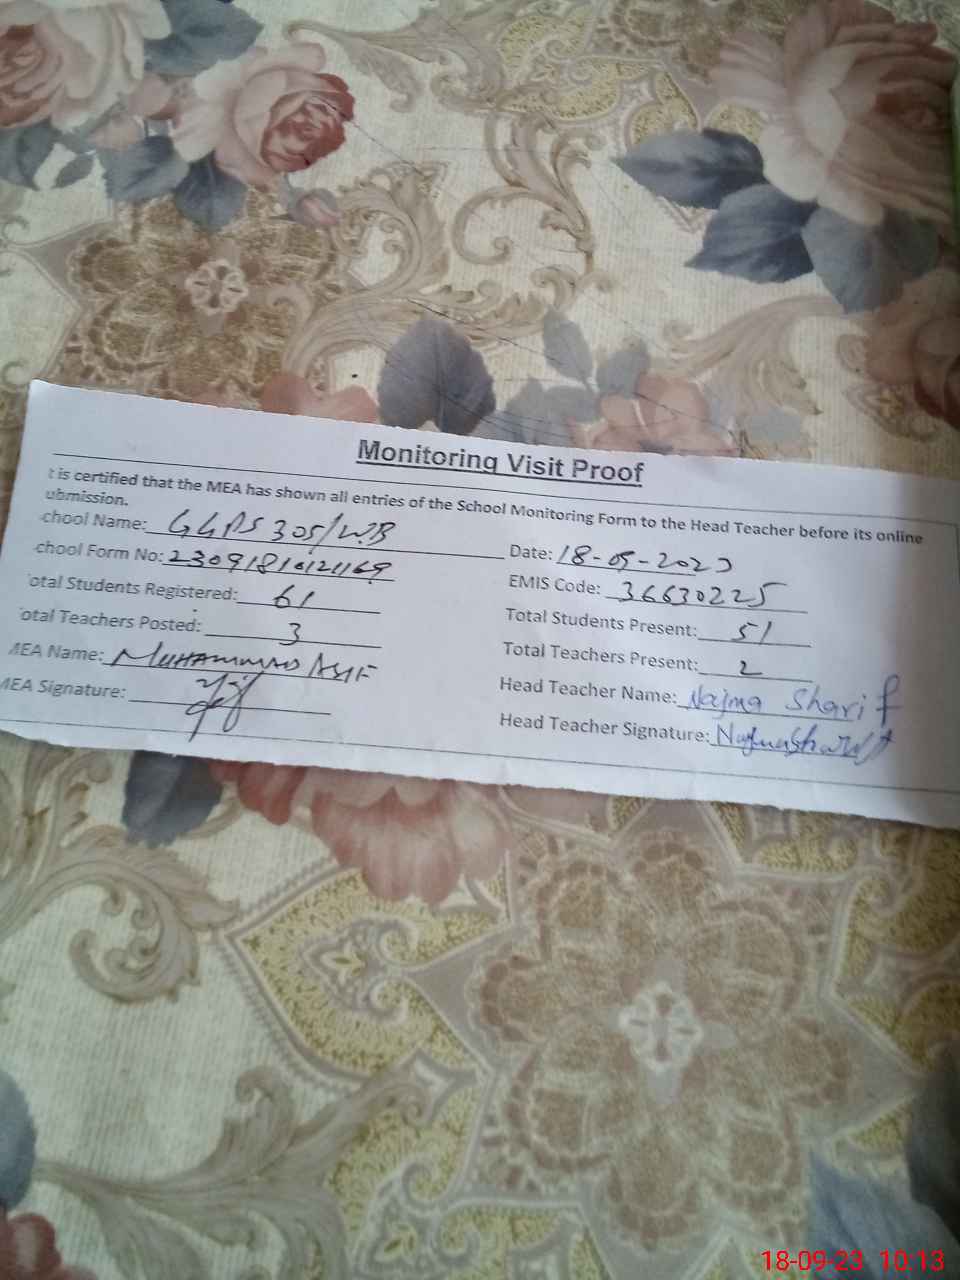 Monitoring Visit Proof
t is certified that the MEA has shown all entries of the School Monitoring Form to the Head Teacher before its online
ubmission.
chool Name: GGPS 305/W.B
Date: 18-09-2023
chool Form No:
EMIS Code: 36630225
otal Students Registered: 61
Total Students Present: 51
otal Teachers Posted: 3
Total Teachers Present: 2
MEA Name: MUHAMMAD ASIF
Head Teacher Name: Najma Sharif
MEA Signature:
Head Teacher Signature: Najma Sharif
18-09-23 10:13